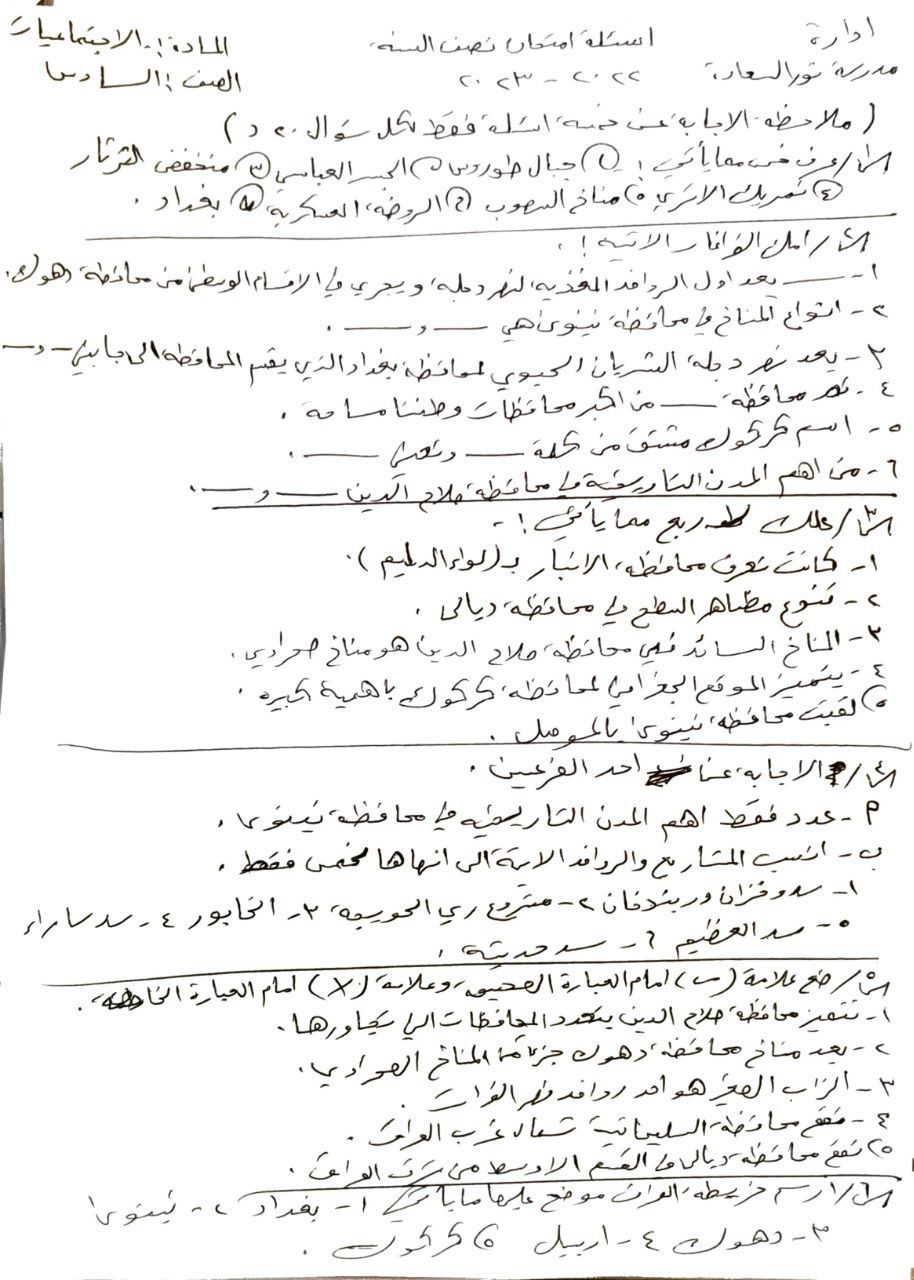 ادارة
مدرسة نور السعادة
اسئلة امتحان نصف السنة
٢٠٢٢ - ٢٠٢٣
المادة :- الاجتماعيات
الصف : السادس
( ملاحظة: الاجابة عن خمسة اسئلة فقط لكل سؤال ٢٠ د )
س١/ عرف خمس مما يأتي :- ١) جبال طوروس ٢) الجسر العباسي ٣) منخفض الثرثار
٤) تمريك الاثري ٥) مناخ السهوب ٦) الروضة العسكرية ٧) بغداد .
س٢/ املئ الفراغات الاتية :.
١- ـــــ يعد اول الروافد المغذية لنهر دجلة ويجري في الاقسام الوسطى من محافظة دهوك.
٢- انواع المناخ في محافظة نينوى هي ـــــ و ـــــ .
٣- يعد نهر دجلة الشريان الحيوي لمحافظة بغداد الذي يقسم المحافظة الى جانبين ــ و ــ
٤- تعد محافظة ـــــ من اكبر محافظات وطننا مساحة .
٥- اسم كركوك مشتق من كلمة ـــــ وتعني ـــــ .
٦- من اهم المدن التاريخية في محافظة صلاح الدين ـــــ و ـــــ .
س٣/ علل اربع مما يأتي :-
١- كانت تعرف محافظة الانبار بـ (لواء الدليم ) .
٢- تنوع مظاهر السطح في محافظة ديالى .
٣- المناخ السائد في محافظة صلاح الدين هو مناخ صحراوي .
٤- يتميز الموقع الجغرافي لمحافظة كركوك باهمية كبيرة .
٥) لقبت محافظة نينوى بالموصل .
س٤/ الاجابة عن احد الفرعين .
أ- عدد فقط اهم المدن التاريخية في محافظة نينوى .
ب- انسب المشاريع والروافد الاتية الى انهاها لخمس فقط .
١- سدوفزان ودربندخان ٢- مشروع ري الحويجة ٣- الخابور ٤- سد سامراء
٥- سد العظيم ٦- سد حديثة .
س٥/ ضع علامة (✓) امام العبارة الصحيحة وعلامة (X) امام العبارة الخاطئة .
١- تتميز محافظة صلاح الدين بتعدد المحافظات التي تجاورها .
٢- يعد مناخ محافظة دهوك جزءا من المناخ الصحراوي .
٣- الزاب الصغير هو احد روافد نهر الفرات .
٤- تقع محافظة السليمانية شمال غرب العراق .
٥) تقع محافظة ديالى في القسم الاوسط من شرق العراق .
س٦/ ارسم خريطة العراق موضح عليها ما يأتي ١- بغداد ٢- نينوى
٣- دهوك ٤- اربيل ٥) كركوك .